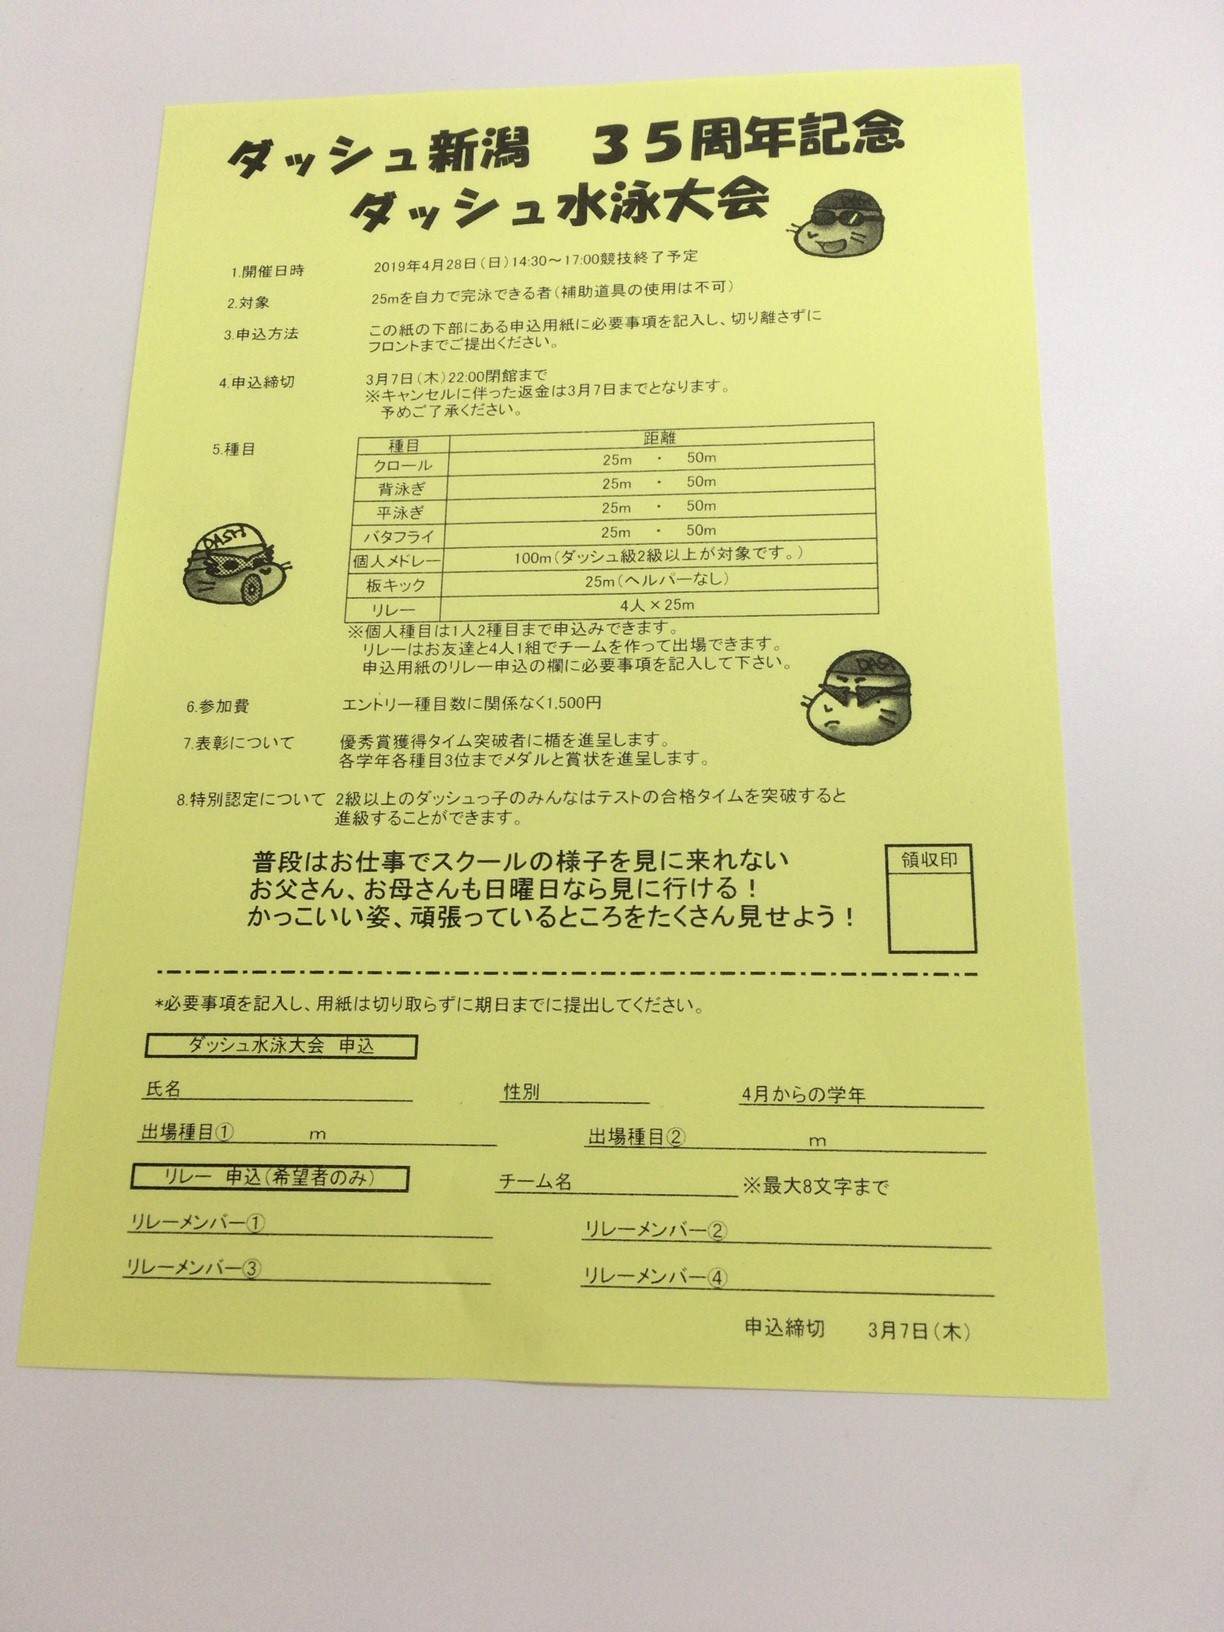 ダッシュ新潟　３５周年記念
ダッシュ水泳大会
DASH
1.開催日時 2019年4月28日(日)14:30～17:00競技終了予定
2.対象 25mを自力で完泳できる者(補助道具の使用は不可)
3.申込方法 この紙の下部にある申込用紙に必要事項を記入し、切り離さずに
フロントまでご提出ください。
4.申込締切 3月7日(木)22:00閉館まで
※キャンセルに伴った返金は3月7日までとなります。
予めご了承ください。
5.種目
種目 距離
クロール 25m ・ 50m
背泳ぎ 25m ・ 50m
平泳ぎ 25m ・ 50m
バタフライ 25m ・ 50m
個人メドレー 100m(ダッシュ級2級以上が対象です。)
板キック 25m(ヘルパーなし)
リレー 4人×25m
DASH
※個人種目は1人2種目まで申込みできます。
リレーはお友達と4人1組でチームを作って出場できます。
申込用紙のリレー申込の欄に必要事項を記入して下さい。
DASH
6.参加費 エントリー種目数に関係なく1,500円
7.表彰について 優秀賞獲得タイム突破者に楯を進呈します。
各学年各種目3位までメダルと賞状を進呈します。
8.特別認定について 2級以上のダッシュっ子のみんなはテストの合格タイムを突破すると
進級することができます。
普段はお仕事でスクールの様子を見に来れない
お父さん、お母さんも日曜日なら見に行ける！
かっこいい姿、頑張っているところをたくさん見せよう！
領収印
*必要事項を記入し、用紙は切り取らずに期日までに提出してください。
ダッシュ水泳大会 申込
氏名 性別 4月からの学年
出場種目① m 出場種目② m
リレー 申込(希望者のみ) チーム名 ※最大8文字まで
リレーメンバー① リレーメンバー②
リレーメンバー③ リレーメンバー④
申込締切 3月7日(木)